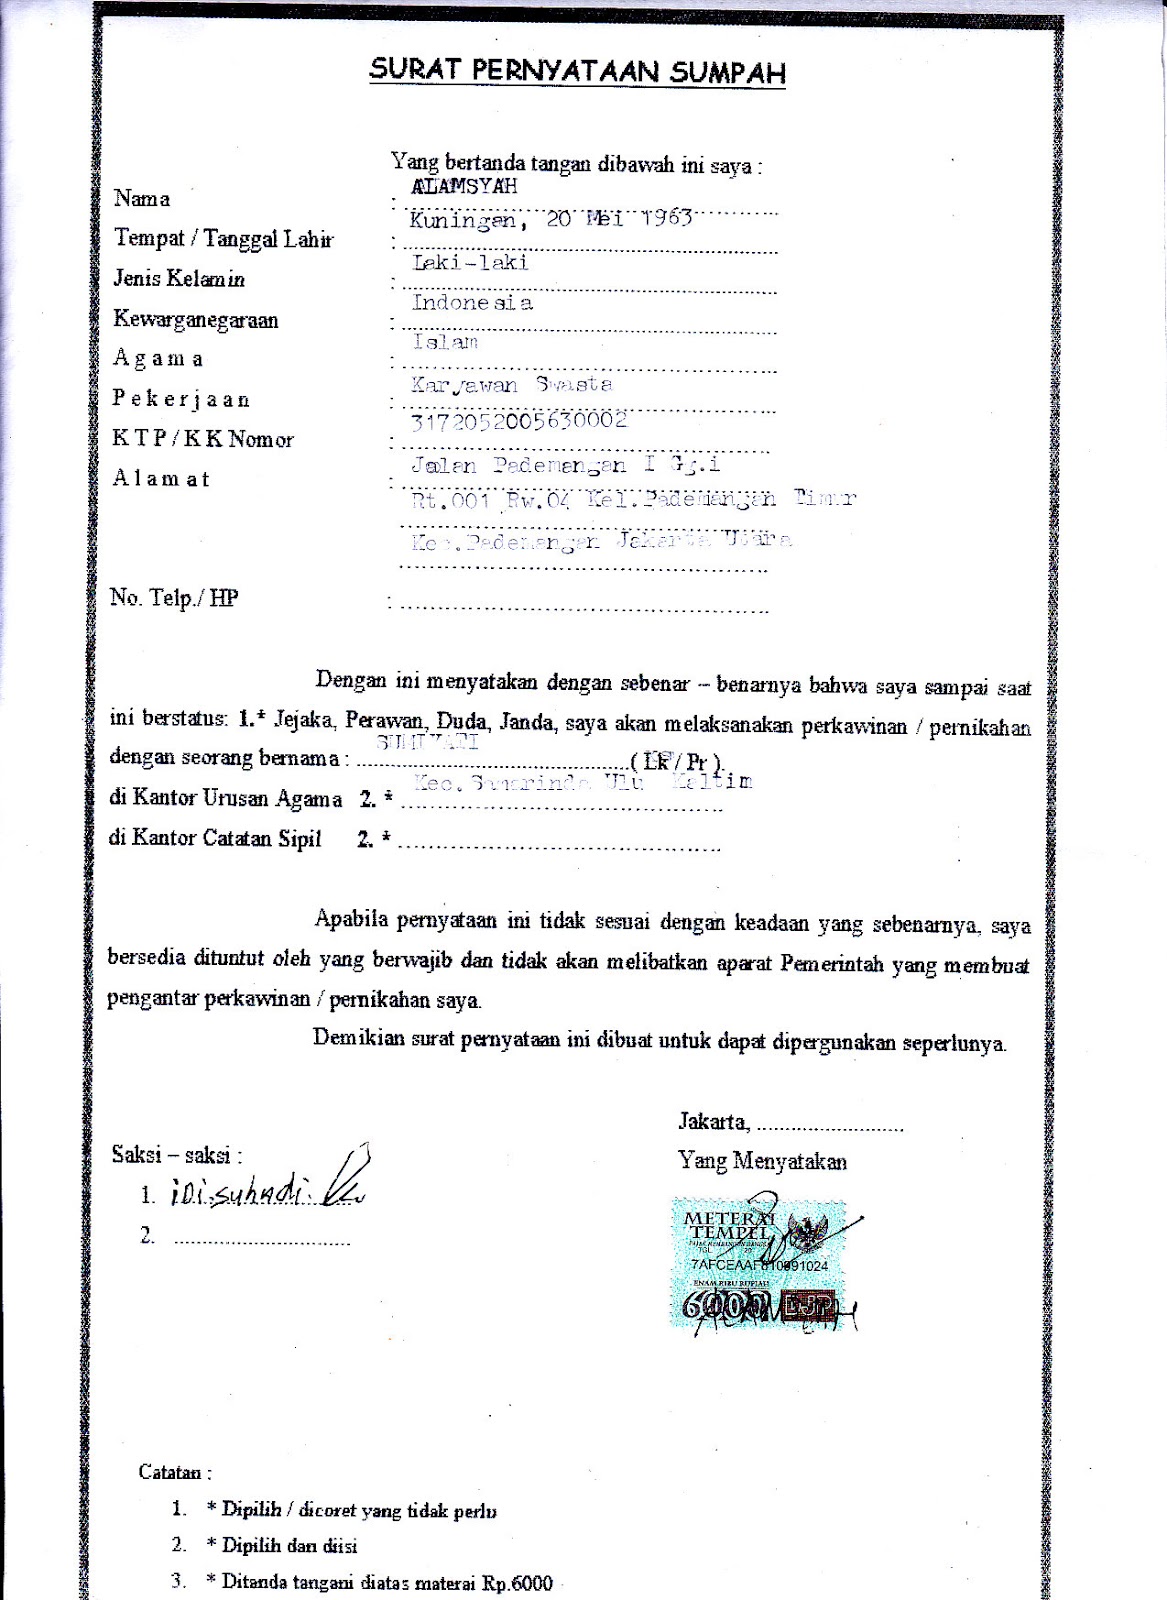 SURAT PERNYATAAN SUMPAH
Yang bertanda tangan dibawah ini saya :
Nama : ALAMSYAH
Tempat / Tanggal Lahir : Kuningan, 20 Mei 1963
Jenis Kelamin : Laki-laki
Kewarganegaraan : Indonesia
A g a m a : Islam
P e k e r j a a n : Karyawan Swasta
K T P / K K Nomor : 3172052005630002
A l a m a t : Jalan Pademangan I Gg.i
Rt.001 Rw.04 Kel.Pademangan Timur
Kec.Pademangan Jakarta Utara
No. Telp./ HP : ..........
Dengan ini menyatakan dengan sebenar – benarnya bahwa saya sampai saat
ini berstatus: 1.* Jejaka, Perawan, Duda, Janda, saya akan melaksanakan perkawinan / pernikahan
dengan seorang bernama : SUMIYATI ( Lk / Pr ).
di Kantor Urusan Agama 2. * Kec.Samarinda Ulu Kaltim
di Kantor Catatan Sipil 2. * ..........
Apabila pernyataan ini tidak sesuai dengan keadaan yang sebenarnya, saya
bersedia dituntut oleh yang berwajib dan tidak akan melibatkan aparat Pemerintah yang membuat
pengantar perkawinan / pernikahan saya.
Demikian surat pernyataan ini dibuat untuk dapat dipergunakan seperlunya.
Jakarta, ..........
Saksi – saksi :
Yang Menyatakan
1. iDi.suhadi.
2. ..........
METERAI
TEMPEL
TGL. 20
7AFCEAAF810991024
ENAM RIBU RUPIAH
6000 DJP
ALAMSYAH
Catatan :
1. * Dipilih / dicoret yang tidak perlu
2. * Dipilih dan diisi
3. * Ditanda tangani diatas materai Rp.6000